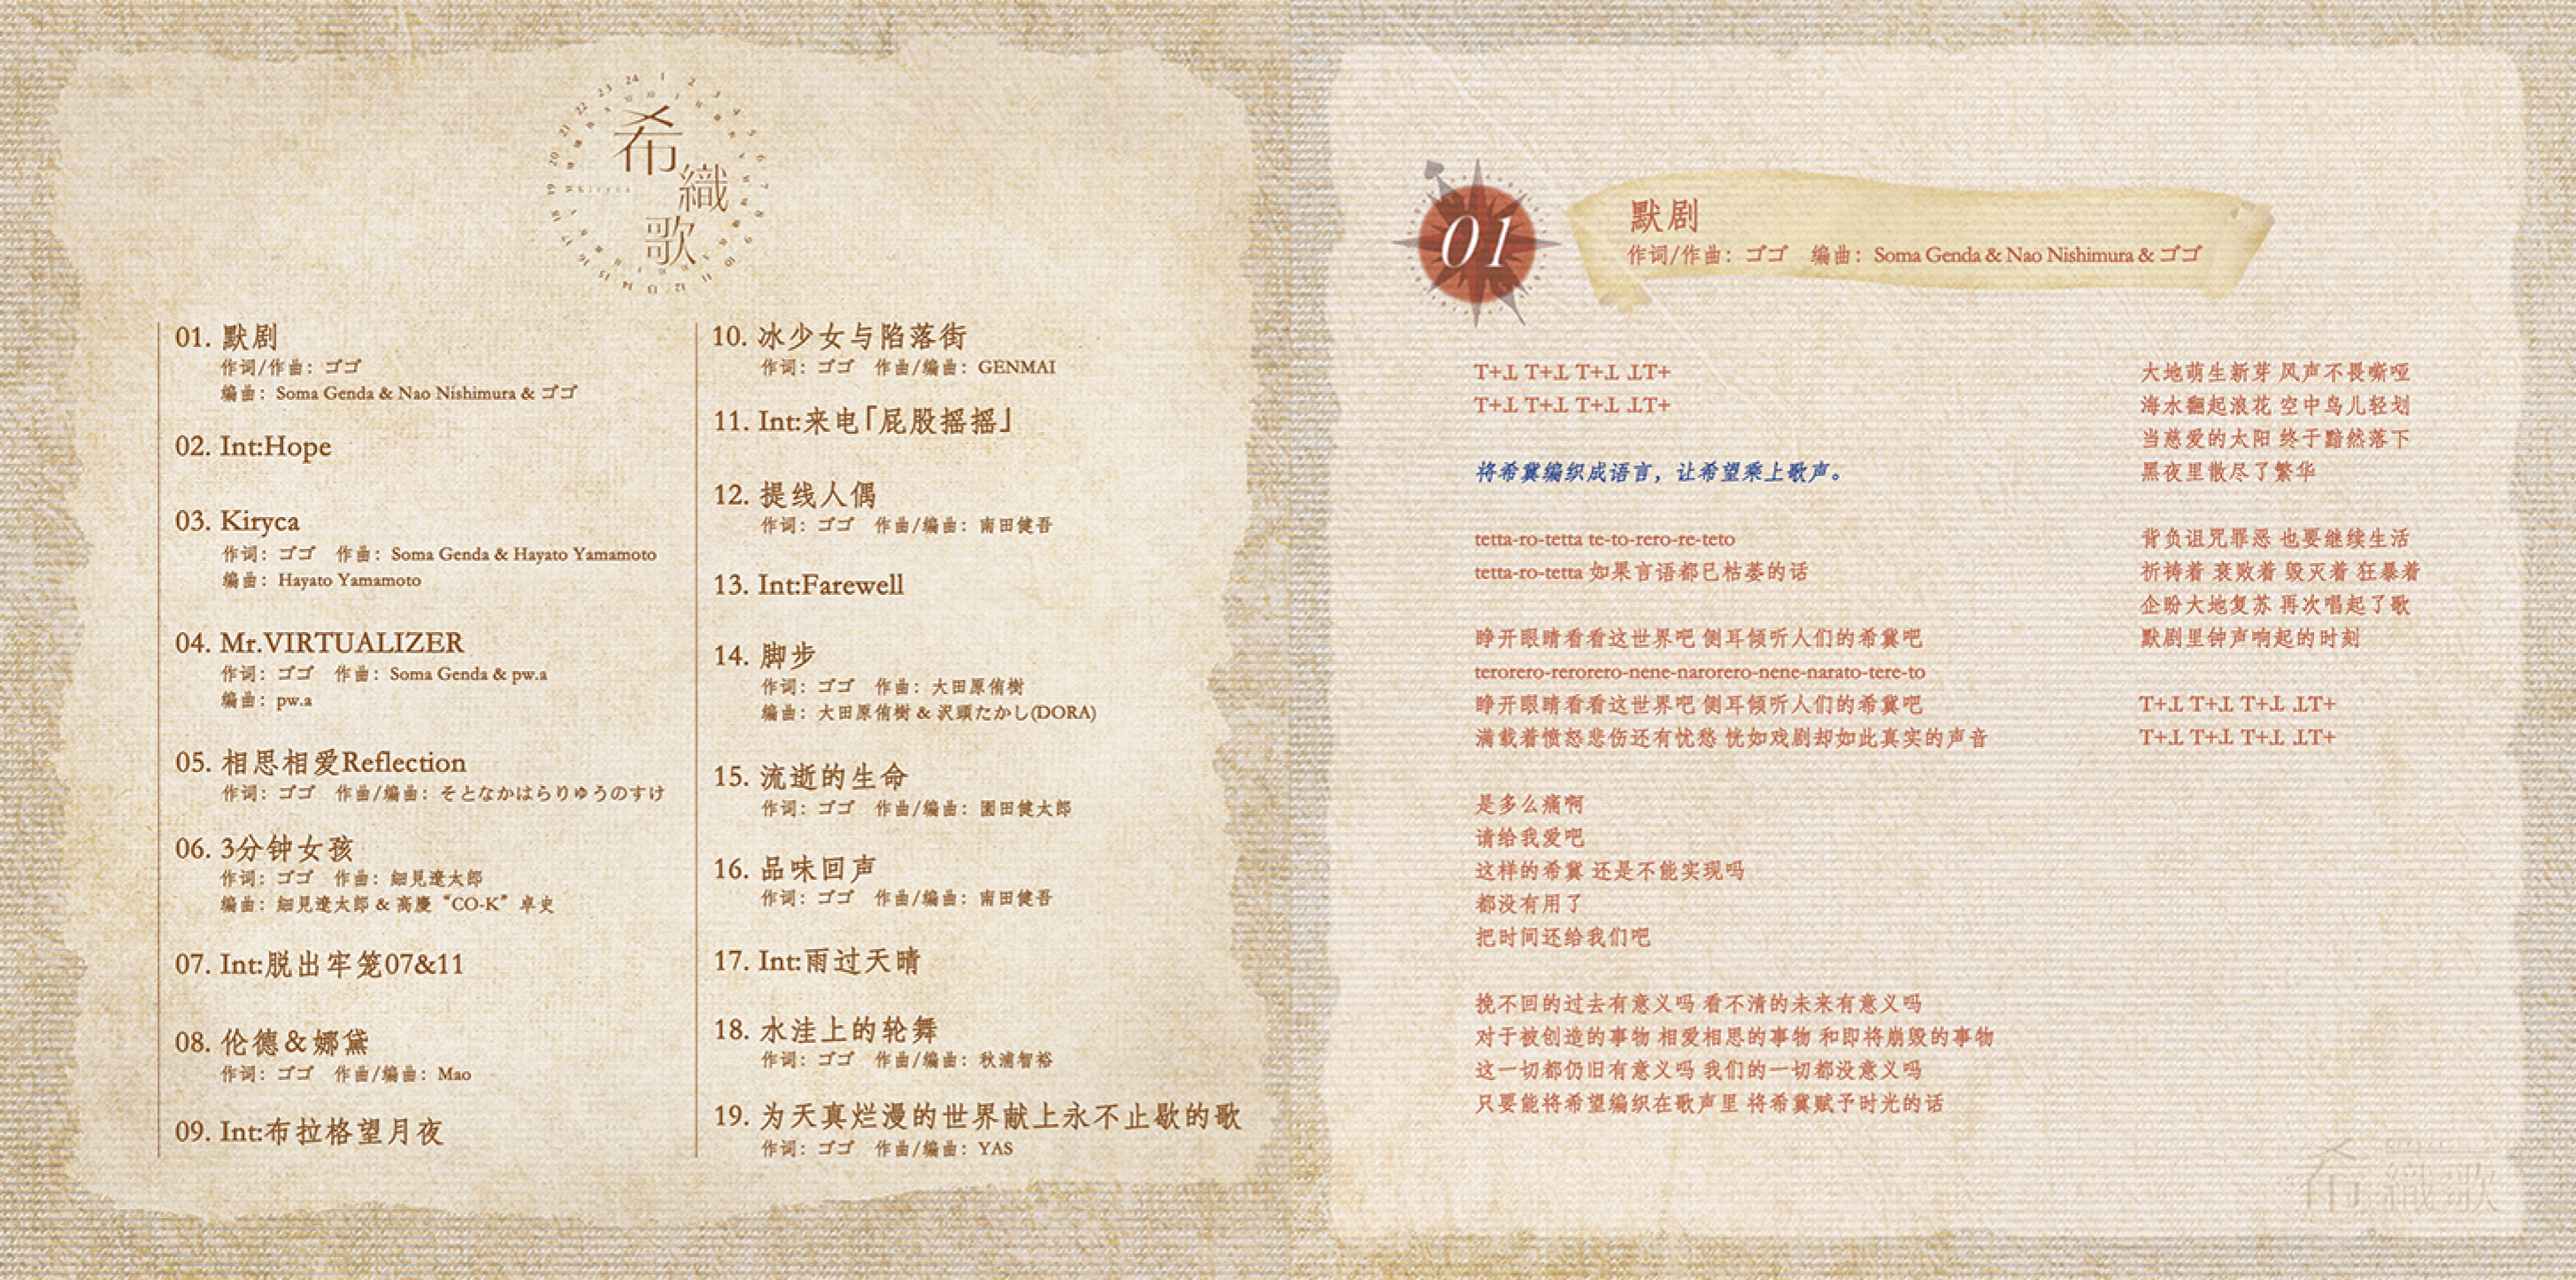 希
織
歌
01. 默剧
作词/作曲：ゴゴ
编曲：Soma Genda & Nao Nishimura & ゴゴ
02. Int:Hope
03. Kiryca
作词：ゴゴ 作曲：Soma Genda & Hayato Yamamoto
编曲：Hayato Yamamoto
04. Mr.VIRTUALIZER
作词：ゴゴ 作曲：Soma Genda & pw.a
编曲：pw.a
05. 相思相爱Reflection
作词：ゴゴ 作曲/编曲：そとなかはらりゆうのすけ
06. 3分钟女孩
作词：ゴゴ 作曲：細見遼太郎
编曲：細見遼太郎 & 高慶“CO-K”卓史
07. Int:脱出牢笼07&11
08. 伦德＆娜黛
作词：ゴゴ 作曲/编曲：Mao
09. Int:布拉格望月夜
10. 冰少女与陷落街
作词：ゴゴ 作曲/编曲：GENMAI
11. Int:来电「屁股摇摇」
12. 提线人偶
作词：ゴゴ 作曲/编曲：南田健吾
13. Int:Farewell
14. 脚步
作词：ゴゴ 作曲：大田原侑樹
编曲：大田原侑樹 & 沢頭たかし(DORA)
15. 流逝的生命
作词：ゴゴ 作曲/编曲：園田健太郎
16. 品味回声
作词：ゴゴ 作曲/编曲：南田健吾
17. Int:雨过天晴
18. 水洼上的轮舞
作词：ゴゴ 作曲/编曲：秋浦智裕
19. 为天真烂漫的世界献上永不止歇的歌
作词：ゴゴ 作曲/编曲：YAS
01
默剧
作词/作曲：ゴゴ 编曲：Soma Genda & Nao Nishimura & ゴゴ
T+⊥ T+⊥ T+⊥ ⊥T+
T+⊥ T+⊥ T+⊥ ⊥T+
将希冀编织成语言，让希望乘上歌声。
tetta-ro-tetta te-to-rero-re-teto
tetta-ro-tetta 如果言语都已枯萎的话
睁开眼睛看看这世界吧 侧耳倾听人们的希冀吧
terorero-rerorero-nene-narorero-nene-narato-tere-to
睁开眼睛看看这世界吧 侧耳倾听人们的希冀吧
满载着愤怒悲伤还有忧愁 恍如戏剧却如此真实的声音
是多么痛啊
请给我爱吧
这样的希冀 还是不能实现吗
都没有用了
把时间还给我们吧
挽不回的过去有意义吗 看不清的未来有意义吗
对于被创造的事物 相爱相思的事物 和即将崩毁的事物
这一切都仍旧有意义吗 我们的一切都没意义吗
只要能将希望编织在歌声里 将希冀赋予时光的话
大地萌生新芽 风声不畏嘶哑
海水翻起浪花 空中鸟儿轻划
当慈爱的太阳 终于黯然落下
黑夜里散尽了繁华
背负诅咒罪恶 也要继续生活
祈祷着 衰败着 毁灭着 狂暴着
企盼大地复苏 再次唱起了歌
默剧里钟声响起的时刻
T+⊥ T+⊥ T+⊥ ⊥T+
T+⊥ T+⊥ T+⊥ ⊥T+
希織歌